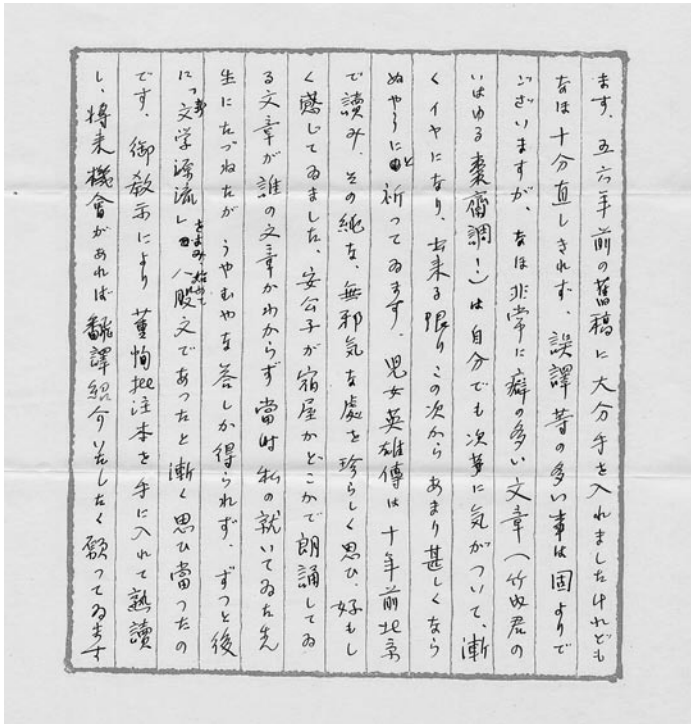 ます、五六年前の舊稿に大分手を入れましたけれども
なほ十分直しきれず、誤譯等の多い事は固よりで
ございますが、なほ非常に癖の多い文章（竹内君の
いはゆる棗齋調！）は自分でも次第に気がついて、漸
くイヤになり、出来る限りこの次からあまり甚しくなら
ぬやうにと祈つてゐます、児女英雄傳は十年前北京
で読み、その純な、無邪気な處を珍らしく思ひ、好もし
く感じてゐました、安公子が宿屋かどこかで朗誦してゐ
る文章が誰の文章かわからず當時私の就いてゐた先
生にたづねたが うやむやな答しか得られず、ずつと後
に「文学源流」をよみ、始めて八股文であつたと漸く思ひ當つたの
です、御教示により 董恂批注本を手に入れて熟讀
し、将来機會があれば飜譯紹介いたしたく願つてゐます